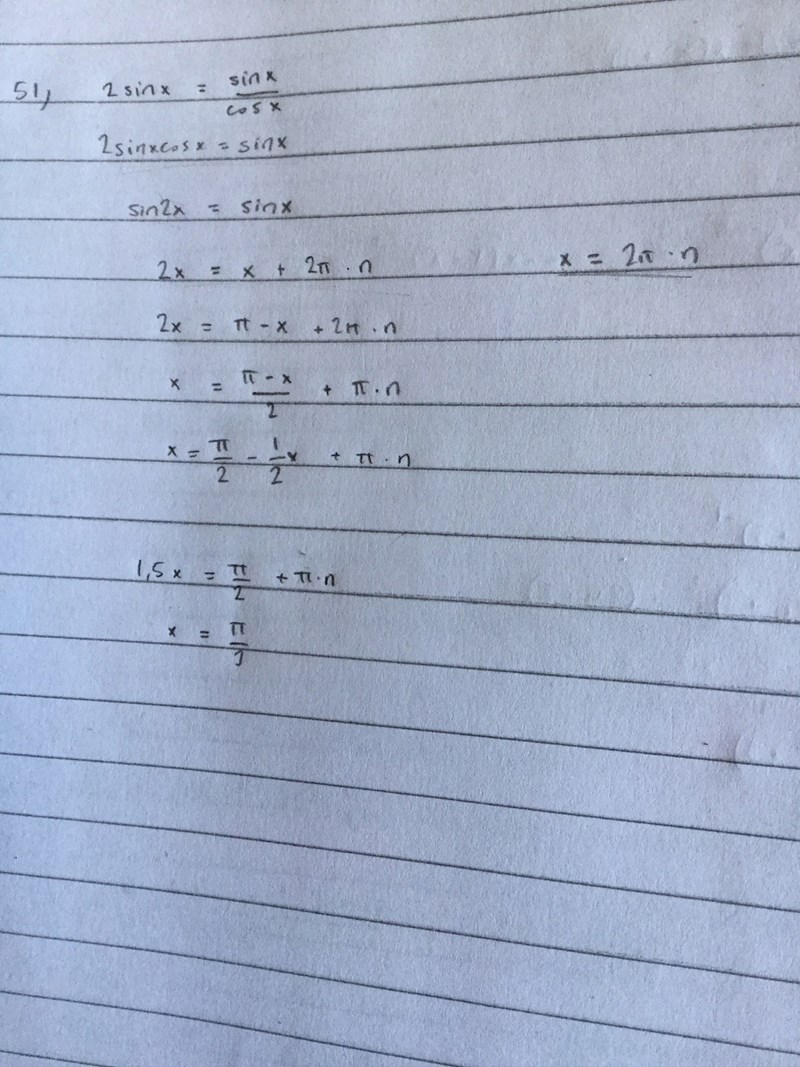 51, 2 sin x = sin x / cos x
2 sin x cos x = sin x
sin 2x = sin x
2x = x + 2π · n x = 2π · n
2x = π - x + 2π · n
x = π - x / 2 + π · n
x = π/2 - 1/2 x + π · n
1,5 x = π/2 + π · n
x = π/3